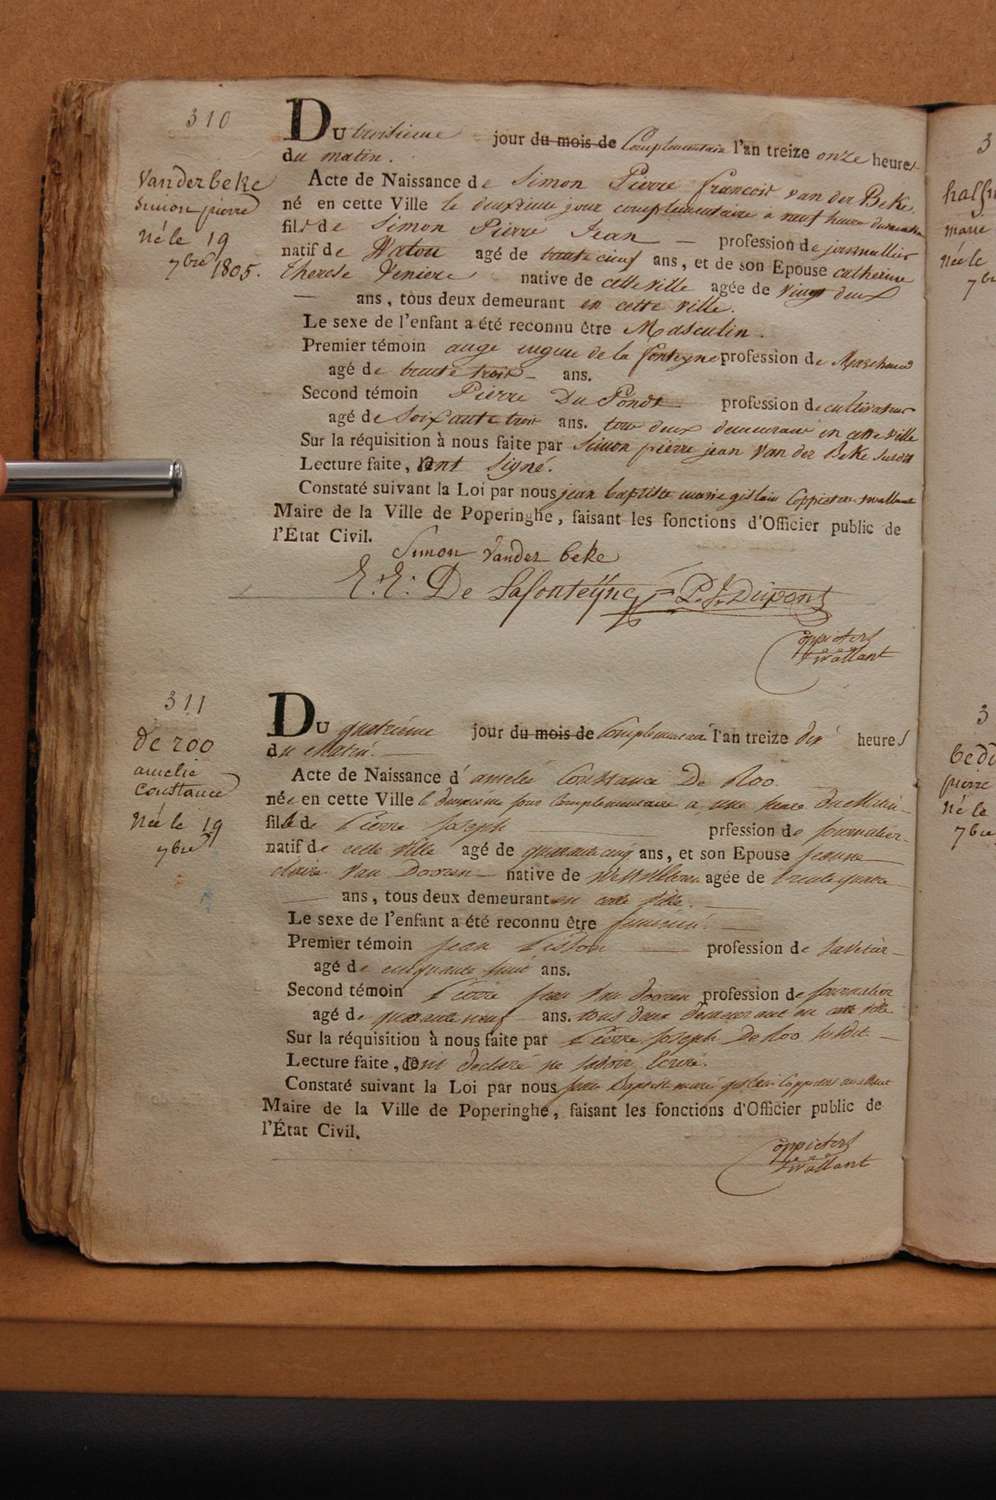 310
DU troisieme jour du mois de Complementaire l'an treize onze heures
du matin.
Vanderbeke
Simon pierre
Né le 19
7bre 1805.
Acte de Naissance de Simon Pierre francois van der Beke
né en cette Ville le deuxieme jour complementaire a neuf heures du matin
fils de Simon Pierre Jean — profession de journallier
natif de Watou agé de trente neuf ans, et de son Epouse catherine
therese Veniere native de cette ville agée de vingt deux
— ans, tous deux demeurant en cette ville.
Le sexe de l'enfant a été reconnu être Masculin.
Premier témoin ange eugene de la fonteyne profession de Marchand
agé de trente trois — ans.
Second témoin Pierre Du Pondt profession de cultivateur
agé de soixante trois ans. tous deux demeurant en cette ville
Sur la réquisition à nous faite par Simon pierre jean Van der Beke susdit
Lecture faite, ont signé.
Constaté suivant la Loi par nous jean baptiste marie gislain Coppieters wallant
Maire de la Ville de Poperinghe, faisant les fonctions d'Officier public de
l'État Civil.
Simon vander beke
E. E. De Lafonteyne P. J. Dupont
Coppieters
wallant
311
DU quatrieme jour du mois de Complementaire l'an treize dix heures
du Matin.
De roo
amelie
constance
Née le 19
7bre
Acte de Naissance d'amelie Constance De Roo
née en cette Ville le deuxieme jour Complementaire a une heure du Matin
fille de Pierre Joseph prfession de Journalier
natif de cette ville agé de quarante cinq ans, et son Epouse Jeanne
claire Van Dooren native de agée de trente quatre
— ans, tous deux demeurant en cette ville.
Le sexe de l'enfant a été reconnu être feminin.
Premier témoin Jean profession de
agé de cinquante huit ans.
Second témoin Pierre Jean Van dooren profession de Journalier
agé de quarante neuf ans. tous deux demeurant en cette ville
Sur la réquisition à nous faite par Pierre Joseph De Roo susdit
Lecture faite, ont declaré ne savoir Ecrire.
Constaté suivant la Loi par nous Jean Baptiste marie gislain Coppieters wallant
Maire de la Ville de Poperinghe, faisant les fonctions d'Officier public de
l'État Civil.
Coppieters
wallant
3
marie
Née le
7b
3
pierre
Né le
7bre